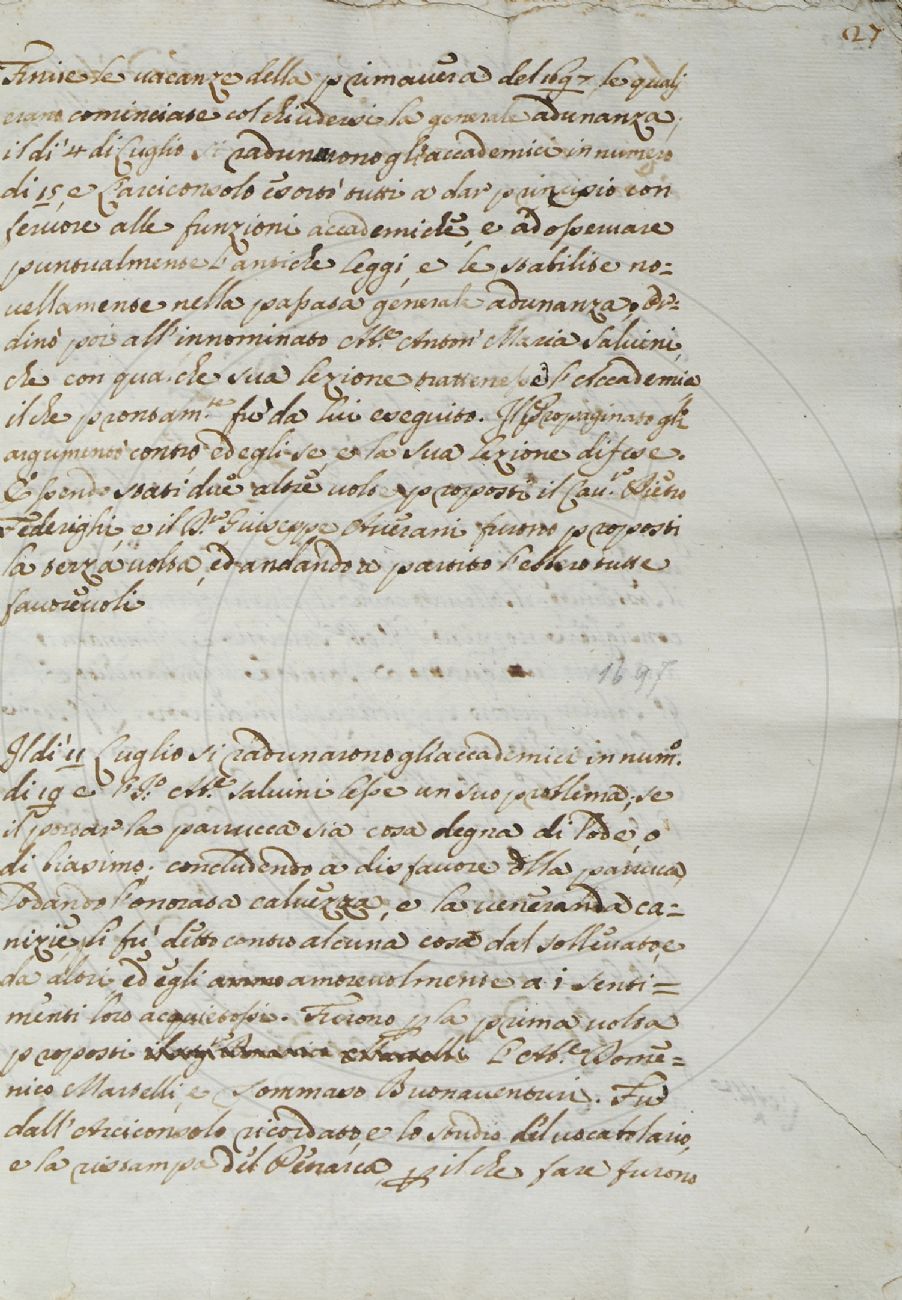 27
Finite le vacanze della primavera del 1697 le quali
erano cominciate col chiudersi la generale adunanza,
il dì 4 di Luglio si radunarono gli accademici in numero
di 15, e l'arciconsolo esortò tutti a dar principio con
fervore alle funzioni accademiche, e ad osservare
puntualmente l'antiche leggi, e le stabilite no=
vellamente nella passata generale adunanza. Or=
dinò poi all'innominato Ab.e Anton Maria Salvini,
che con qualche sua lezione trattenesse l'Accademia
il che prontam.te fù da lui eseguito. Il Propaginato gli
argumentò contro ed egli se, e la sua lezione difese.
Essendo stati due altre volte proposti il Cav.re Pietro
Federighi, e il D.re Giuseppe Averani furono proposti
la terza volta, ed andando a partito l'ebbero tutte
favorevoli
1697
Il dì 11 Luglio si radunarono gl'accademici in num.o
di 19 e l' Ab.e Salvini lesse un suo problema, se
il portar la parrucca sia cosa degna di lode, o
di biasimo; concludendo a disfavore della parruca,
lodando l'onorata calvezza, e la veneranda ca=
nizie, li fù detto contro alcuna cosa dal sollevato, e
da altri, ed egli amorevolmente a i senti=
menti loro acquietossi. Furono p la prima volta
proposti l'Ab.e Dome=
nico Martelli, e Tommaso Buonaventuri. Fù
dall'Arciconsolo ricordato, e lo studio del vocabolario,
e la ristampa del Petrarca, p il che fare furono